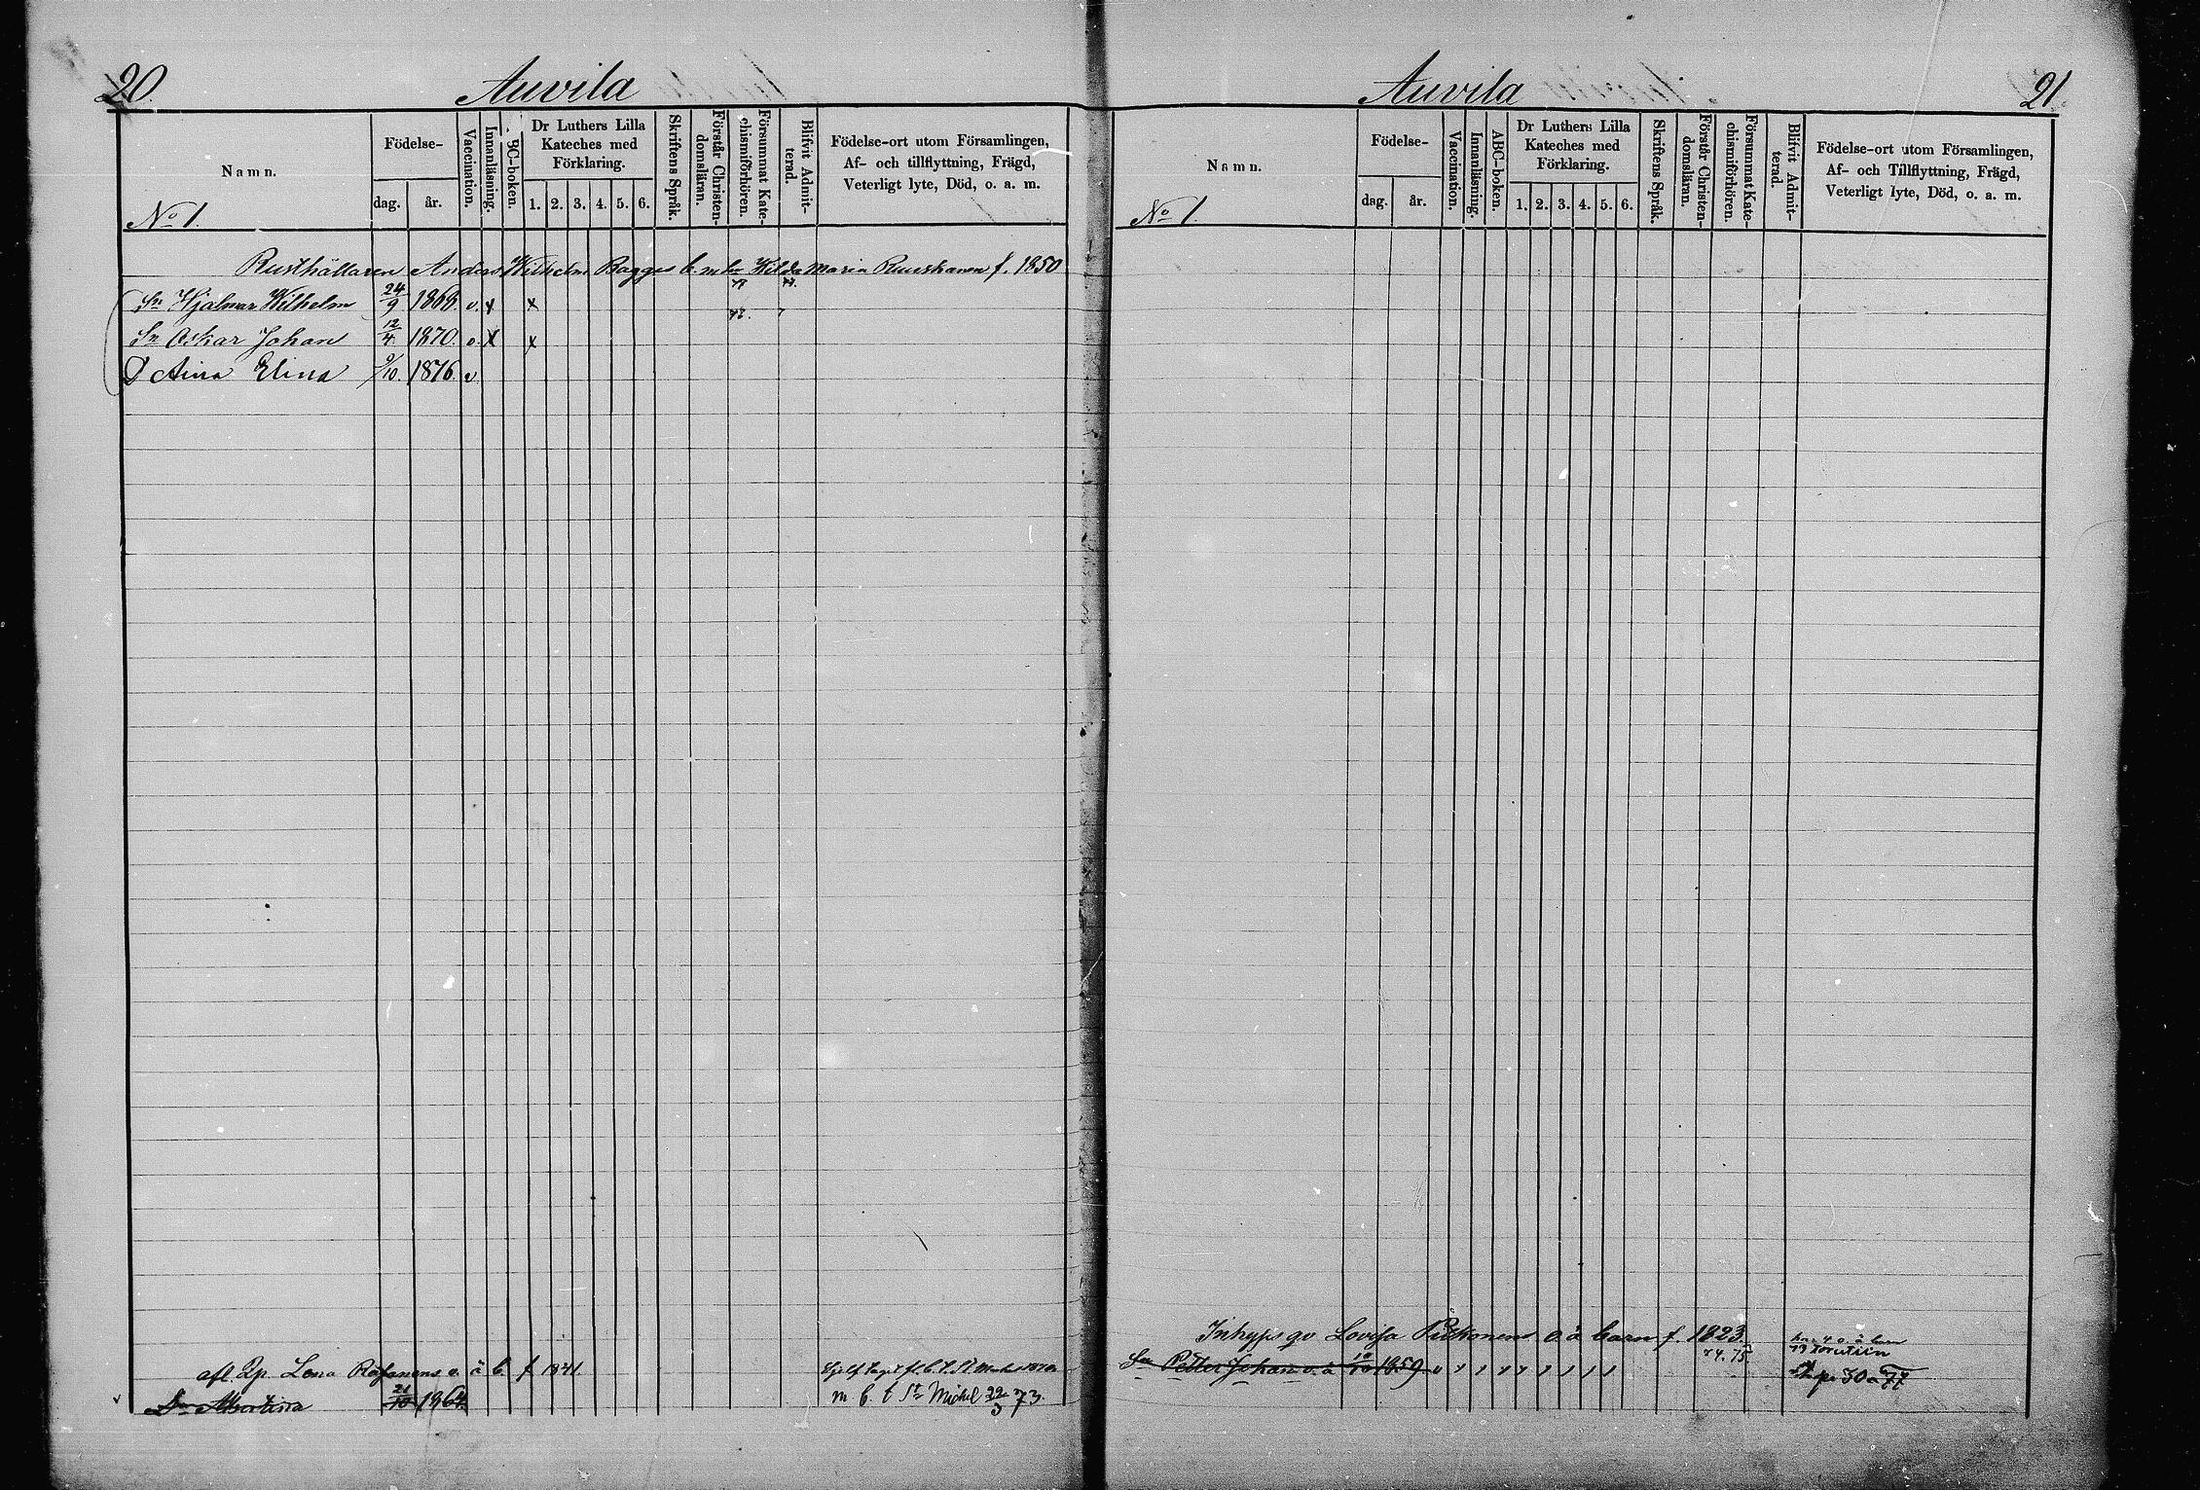 20. Auvila
Namn. Födelse- dag. år. Vaccination. Innanläsning. BC-boken. Dr Luthers Lilla Kateches med Förklaring. 1. 2. 3. 4. 5. 6. Skriftens Språk. Förstår Christen-domsläran. Försummat Kate-chismiförhören. Blifvit Admit-terad. Födelse-ort utom Församlingen, Af- och tillflyttning, Frägd, Veterligt lyte, Död, o. a. m.
No 1.
Rusthållaren Anders Wilhelm Bagges b. m hu Hilda Maria f. 1850
Sn Hjalmar Wilhelm 24/9 1868. v. x x
Sn Oskar Johan 12/4 1870. v. x x
D Aina Elina 9/10. 1876. v
afl. Lena o. ä b. f 1841.
Dr Albertina 21/10 1864
m b. t St Michel 22/3 73.
Auvila 21.
Namn. Födelse- dag. år. Vaccination. Innanläsning. ABC-boken. Dr Luthers Lilla Kateches med Förklaring. 1. 2. 3. 4. 5. 6. Skriftens Språk. Förstår Christen-domsläran. Försummat Kate-chismiförhören. Blifvit Admit-terad. Födelse-ort utom Församlingen, Af- och Tillflyttning, Frägd, Veterligt lyte, Död, o. a. m.
No 1.
Inhyses qv Lovisa o. ä barn f. 1823.
74. 75
Son Petter Johan o. ä 10/10 1859 v